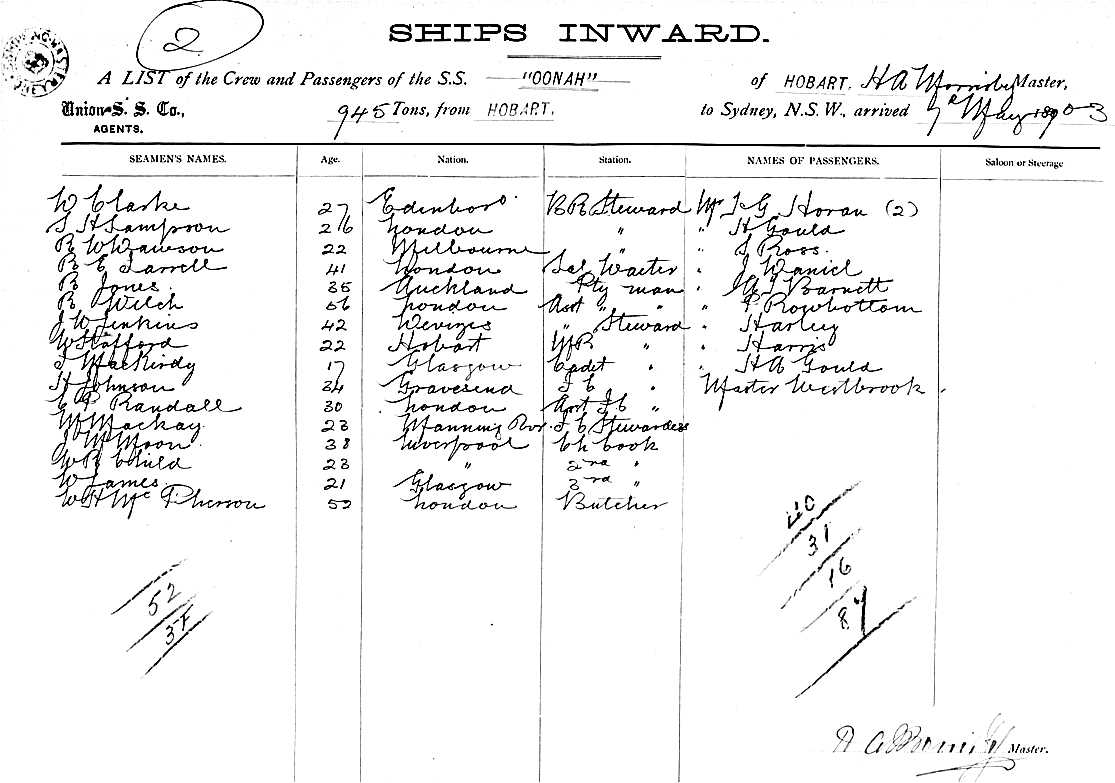 2
SHIPS INWARD.
A LIST of the Crew and Passengers of the S.S. "OONAH" of HOBART, H A Master,
Union S. S. Co., 945 Tons, from HOBART. to Sydney, N.S.W., arrived 7th May 1903
AGENTS.
SEAMEN'S NAMES. Age. Nation. Station. NAMES OF PASSENGERS. Saloon or Steerage
W Clarke 27 Edenboro' B R Steward Mr J G Horan (2)
S H Sampson 26 London " " H Gould
R W Dawson 22 Melbourne " " S Ross.
R E Farrell 41 London Sal Waiter " J Daniel
R Jones. 35 Auckland Pty man " Barnett
R Welch 56 London Asst " " " P Rowbottom
J W Jenkins 42 Devizes " Steward " Harley
W Stafford 22 Hobart " " Harris
MacKirdy 17 Glasgow Cadet " " H A Gould
H Johnson 34 Gravesend " Master Westbrook
Randall 30 London Asst "
Mackay 23 Manning Rvr. Stewardess
J W Moon. 38 Liverpool Ch Cook
W R Child 23 " 2nd "
W James 21 Glasgow 3rd "
W H McPherson 52 London Butcher
40
31
16
87
52
Master.